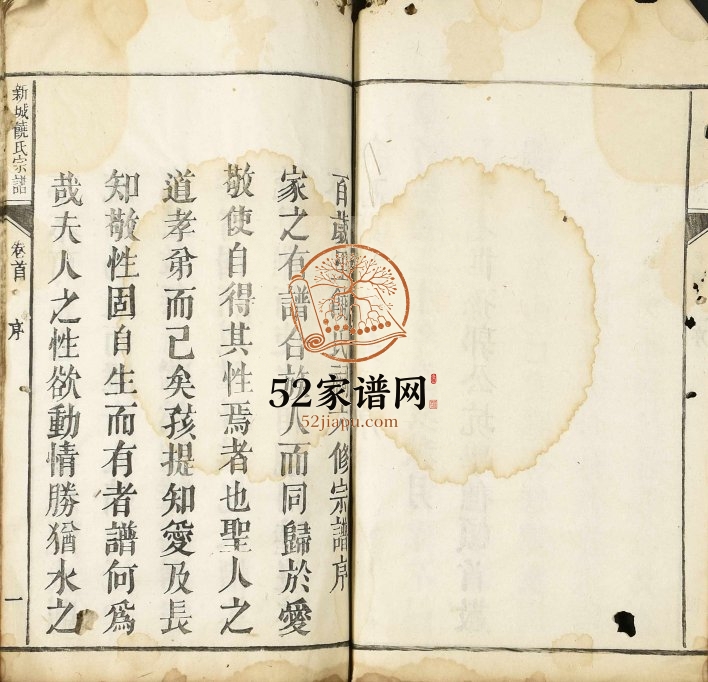 百歲饒氏修宗譜序
家之有譜合族人而同歸於愛
敬使自得其性焉者也聖人之
道孝弟而已矣孩提知愛及長
知敬性固自生而有者譜何爲
哉夫人之性欲動情勝猶水之
新城饒氏宗譜
卷首
序
一
52家谱网
52jiapu.com